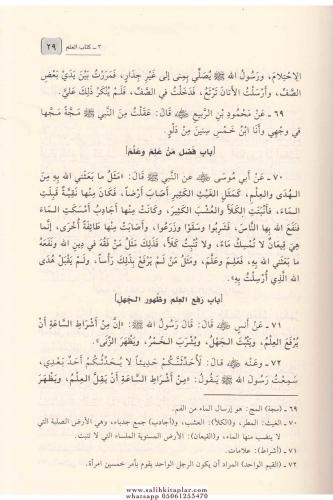 ٣ ـ كتاب العلم ٢٩
الاحْتِلامَ، ورَسُولُ الله ﷺ يُصَلِّي بِمِنى إلى غَيْرِ جِدَارٍ، فَمَرَرْتُ بَيْنَ يَدَيْ بَعْضِ
الصَّفِّ، وأرْسَلْتُ الأتانَ تَرْتَعُ، فَدَخَلْتُ في الصَّفِّ، فَلَمْ يُنْكَرْ ذَلِكَ عَلَيَّ.
٦٩ ـ عَنْ مَحْمُودِ بْنِ الرَّبِيعِ ﷺ قَالَ: عَقَلْتُ مِنَ النَّبِيِّ ﷺ مَجَّةً مَجَّها
في وجْهِي وأنَا ابْنُ خَمْسِ سِنِينَ مِنْ دَلْوٍ.
[باب فَضْلِ مَنْ عَلِمَ وعَلَّمَ]
٧٠ ـ عَنْ أبي مُوسَى عَنِ النَّبِيِّ ﷺ قَالَ: «مَثَلُ ما بَعَثَني الله بِهِ مِنَ
الهُدَى والعِلْمِ، كَمَثَلِ الغَيْثِ الكَثِيرِ أصَابَ أرْضاً، فَكَانَ مِنْها نَقِيَّةٌ قَبِلَتِ
المَاءَ، فَأنْبَتَتِ الكَلأَ والعُشْبَ الكَثِيرَ، وكَانَتْ مِنْها أجَادِبُ أمْسَكَتِ المَاءَ
فَنَفَعَ الله بِها النَّاسَ، فَشَرِبُوا وسَقَوْا وزَرَعُوا، وأصَابَتْ مِنْها طَائِفَةً أُخْرَى، إنَّما
هِيَ قِيعَانٌ لا تُمْسِكُ مَاءً، ولا تُنْبِتُ كَلأً، فَذَلِكَ مَثَلُ مَنْ فَقُهَ في دِينِ الله ونَفَعَهُ
ما بَعَثَني الله بِهِ، فَعَلِمَ وعَلَّمَ، ومَثَلُ مَنْ لَمْ يَرْفَعْ بِذَلِكَ رَأْساً، ولَمْ يَقْبَلْ هُدَى
الله الَّذِي أُرْسِلْتُ بِهِ».
[باب رَفْعِ العِلْمِ وظُهورِ الجَهْلِ]
٧١ ـ عَنْ أنَسٍ قَالَ: قَالَ رَسُولُ الله ﷺ: «إنَّ مِنْ أشْرَاطِ السَّاعَةِ أنْ
يُرْفَعَ العِلْمُ، ويَثْبُتَ الجَهْلُ، ويُشْرَبَ الخَمْرُ، ويَظْهَرَ الزِّنَى».
٧٢ ـ وعَنْهُ قَالَ: لأُحَدِّثَنَّكُمْ حَدِيثاً لا يُحَدِّثُكُمْ أحَدٌ بَعْدِي،
سَمِعْتُ رَسُولَ الله ﷺ يَقُولُ: «مِنْ أشْرَاطِ السَّاعَةِ أنْ يَقِلَّ العِلْمُ، ويَظْهَرَ
٦٩ ـ (مجة) المج: هو إرسال الماء من الفم.
٧٠ ـ الغيث: المطر، و(الكلأ): العشب، و(أجادب) جمع جدباء، وهي الأرض الصلبة التي
لا ينضب منها الماء، و(القيعان): الأرض المستوية الملساء التي لا تنبت.
٧١ ـ (أشراط): علامات.
٧٢ ـ (القيم الواحد) المراد أن يكون الرجل الواحد يقوم بأمر خمسين امرأة.
www.salihkitaplar.com
whatsapp 05061253470